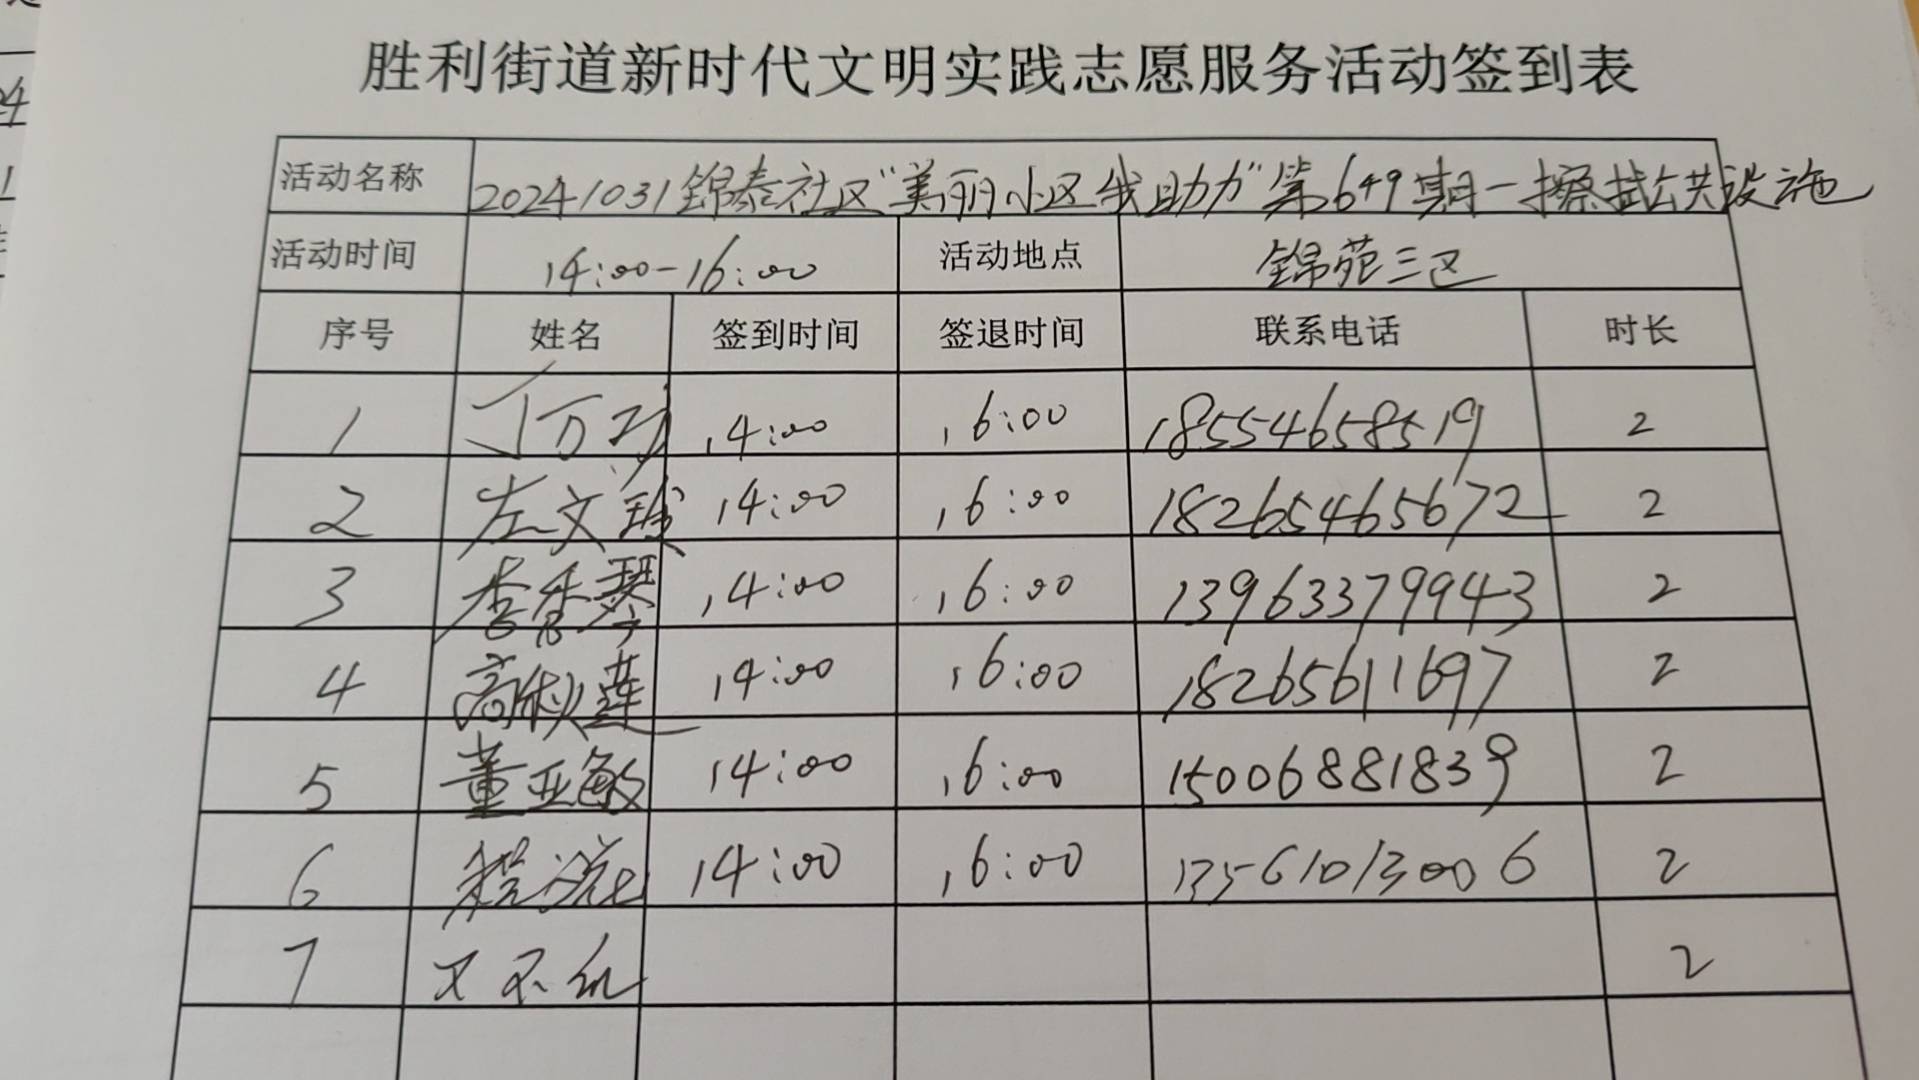 胜利街道新时代文明实践志愿服务活动签到表
活动名称 20241031锦泰社区“美丽小区我助力”第649期一擦拭公共设施
活动时间 14:00-16:00 活动地点 锦苑三区
序号 姓名 签到时间 签退时间 联系电话 时长
1 丁万 14:00 16:00 18554658519 2
2 左文 14:00 16:00 18265465672 2
3 李香琴 14:00 16:00 13963379943 2
4 高秋莲 14:00 16:00 18265611697 2
5 董亚敏 14:00 16:00 15006881839 2
6 程 14:00 16:00 13561013006 2
7 2